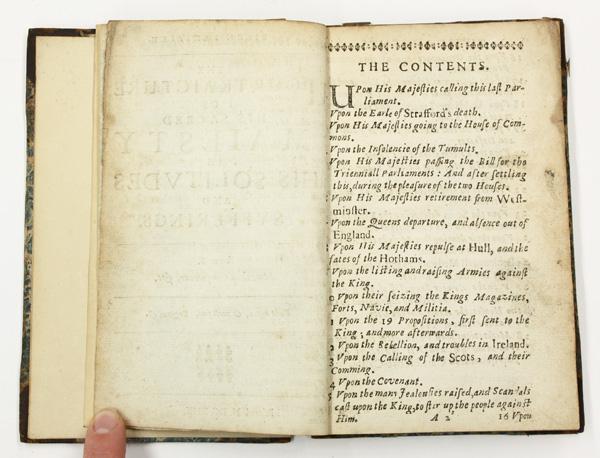 THE CONTENTS.
UPon His Majesties calling this last Par-
liament.
Vpon the Earle of Strafford's death.
Vpon His Majesties going to the House of Com-
mons.
Vpon the Insolencie of the Tumults.
Vpon His Majesties passing the Bill for the
Trienniall Parliaments: And after settling
this, during the pleasure of the two Houses.
Vpon His Majesties retirement from West-
minster.
Vpon the Queens departure, and absence out of
England.
Vpon His Majesties repulse at Hull, and the
fates of the Hothams.
Vpon the listing and raising Armies against
the King.
0 Vpon their seizing the Kings Magazines,
Forts, Navie, and Militia.
1 Vpon the 19 Propositions, first sent to the
King; and more afterwards.
2 Vpon the Rebellion, and troubles in Ireland.
3 Vpon the Calling of the Scots, and their
Comming.
4 Vpon the Covenant.
5 Vpon the many Jealousies raised, and Scandals
cast upon the King, to stir up the people against
Him.
A 2
16 Vpon